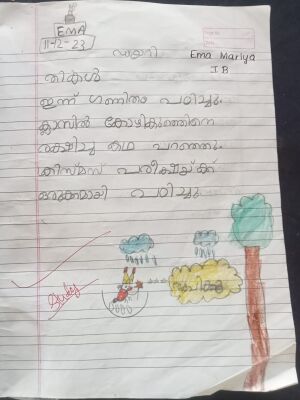 EMA
11-12-23
ഡയറി
Ema Mariya
I B
തികൾ
ഇന്ന് ഗണിതം പഠിച്ചു.
ക്ലാസിൽ കോഴികുഞ്ഞിനെ
രക്ഷിച്ച കഥ പറഞ്ഞു.
ക്രിസ്മസ് പരീക്ഷയ്ക്ക്
ഒരുക്കമായി പഠിച്ചു